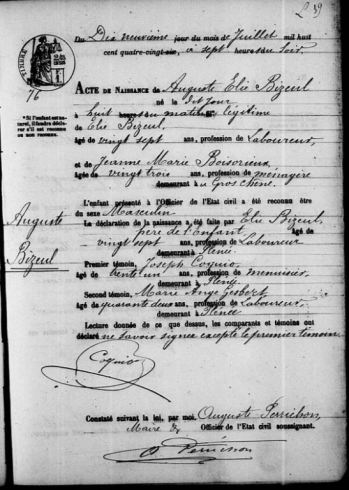 239
Du Dix neuvième jour du mois de Juillet mil huit
cent quatre-vingt-six, à sept heures du soir.
TIMBRE
76
ACTE DE NAISSANCE de Auguste Elie Bizeul
né le dit jour
à huit heures du matin, légitime
*Si l'enfant est naturel, il faudra déclarer s'il est reconnu ou non reconnu.
de Elie Bizeul,
âgé de vingt sept ans, profession de Laboureur,
et de Jeanne Marie Boisorieux
âgée de vingt trois ans, profession de ménagère
demeurant au Gros chêne.
L'enfant présenté à l'Officier de l'Etat civil a été reconnu être
du sexe Masculin
Auguste
Bizeul
La déclaration de la naissance a été faite par Elie Bizeul,
père de l'Enfant, âgé de
vingt sept ans, profession de Laboureur
demeurant à Plénée
Premier témoin, Joseph Coquio
âgé de trente un ans, profession de menuisier,
demeurant à Plénée.
Second témoin, Marie Ange Gesbert
âgé de quarante deux ans, profession de Laboureur,
demeurant à Plénée
Lecture donnée de ce que dessus, les comparants et témoins ont
déclaré ne savoir signer excepté le premier témoin
Coquio
Constaté suivant la loi, par moi, Auguste
Maire & Officier de l'Etat civil soussigné.